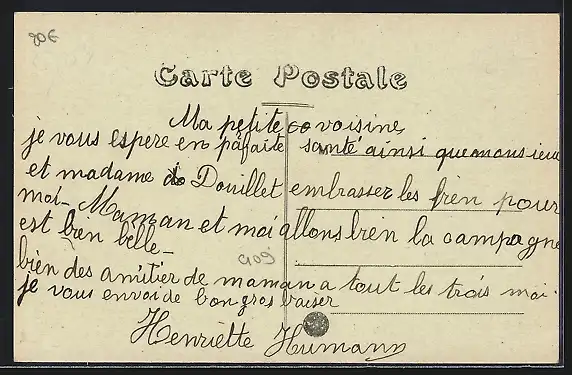 20€
Carte Postale
Ma petite voisine
je vous espere en pafaite santé ainsi que monsieur
et madame Douillet embrasser les bien pour
moi - Maman et moi allons bien la campagne
est bien belle -
C109
bien des amitier de maman a tout les trois moi
je vous envoi de bon gros baiser
Henriette Humann